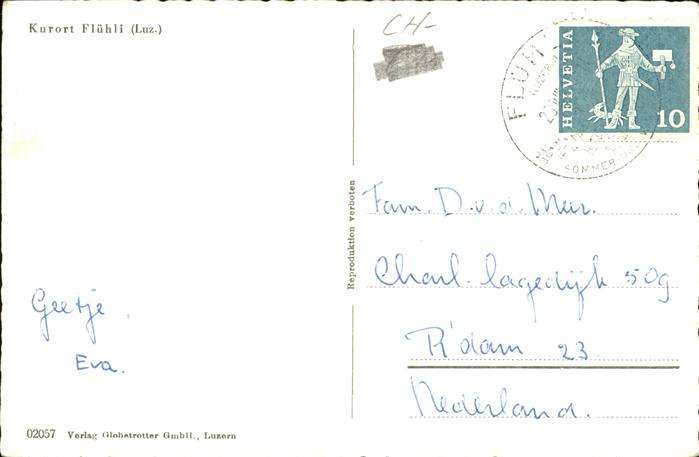 Kurort Flühli (Luz.)
CH-
HELVETIA
10
FLÜHLI
SOMMER
Reproduktion verboten
Fam. D. v. d. Meer.
Charl. Lagedijk 50g
R'dam 23
Nederland.
Geetje
Eva.
02057 Verlag Globetrotter GmbH., Luzern